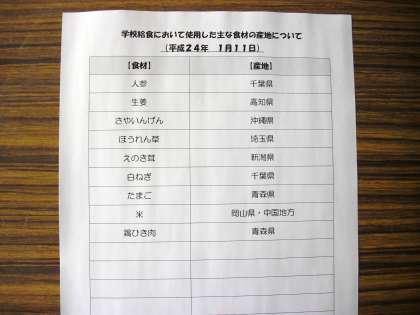 学校給食において使用した主な食材の産地について
（平成２４年　１月１１日）
【食材】　【産地】
人参　千葉県
生姜　高知県
さやいんげん　沖縄県
ほうれん草　埼玉県
えのき茸　新潟県
白ねぎ　千葉県
たまご　青森県
米　岡山県・中国地方
鶏ひき肉　青森県